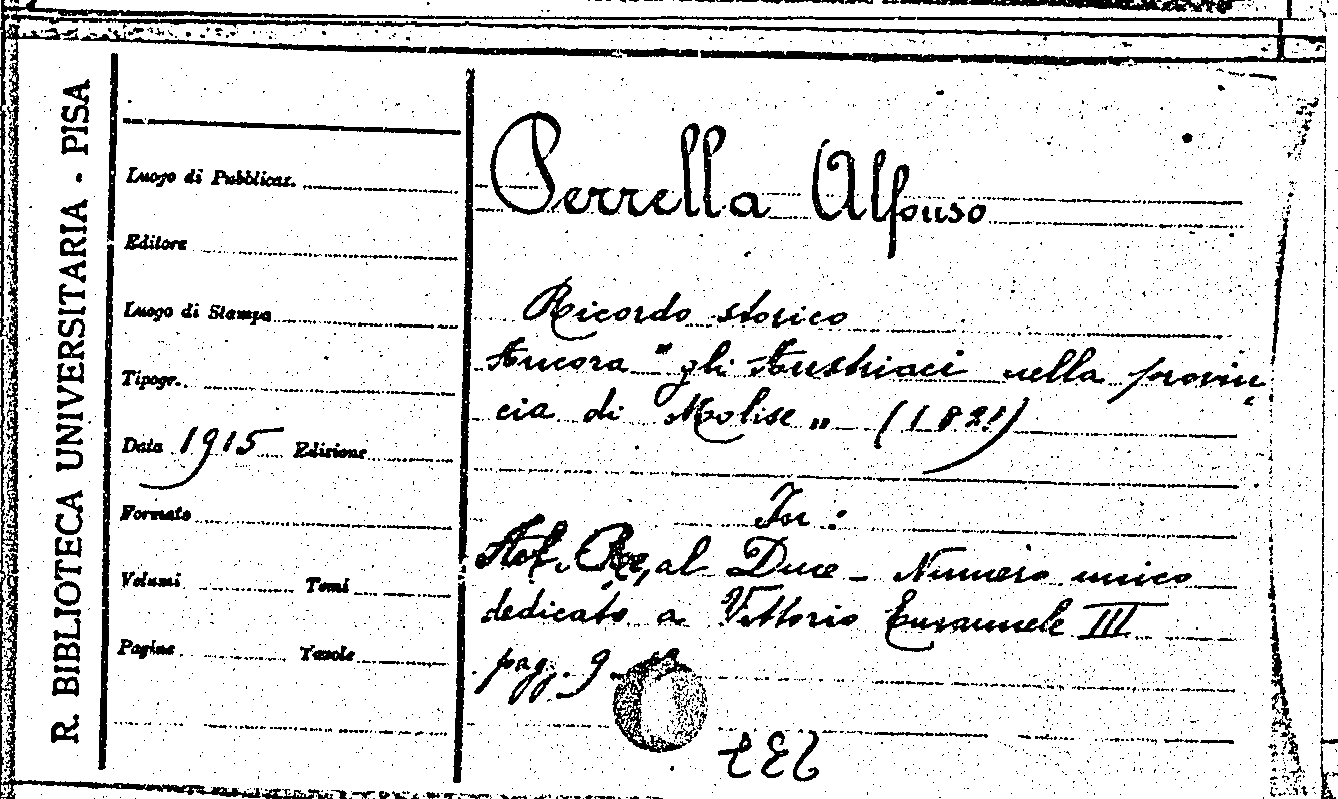 R. BIBLIOTECA UNIVERSITARIA - PISA
Luogo di Pubblicaz.
Editore
Luogo di Stampa
Tipogr.
Data 1915 Edizione
Formato
Volumi Tomi
Pagine Tavole
Perrella Alfonso
Ricordo storico
Ancora "gli Austriaci nella provin
cia di Molise„ (1821)
In:
al Duce - Numero unico
dedicato a Vittorio Emanuele III
pag. 9